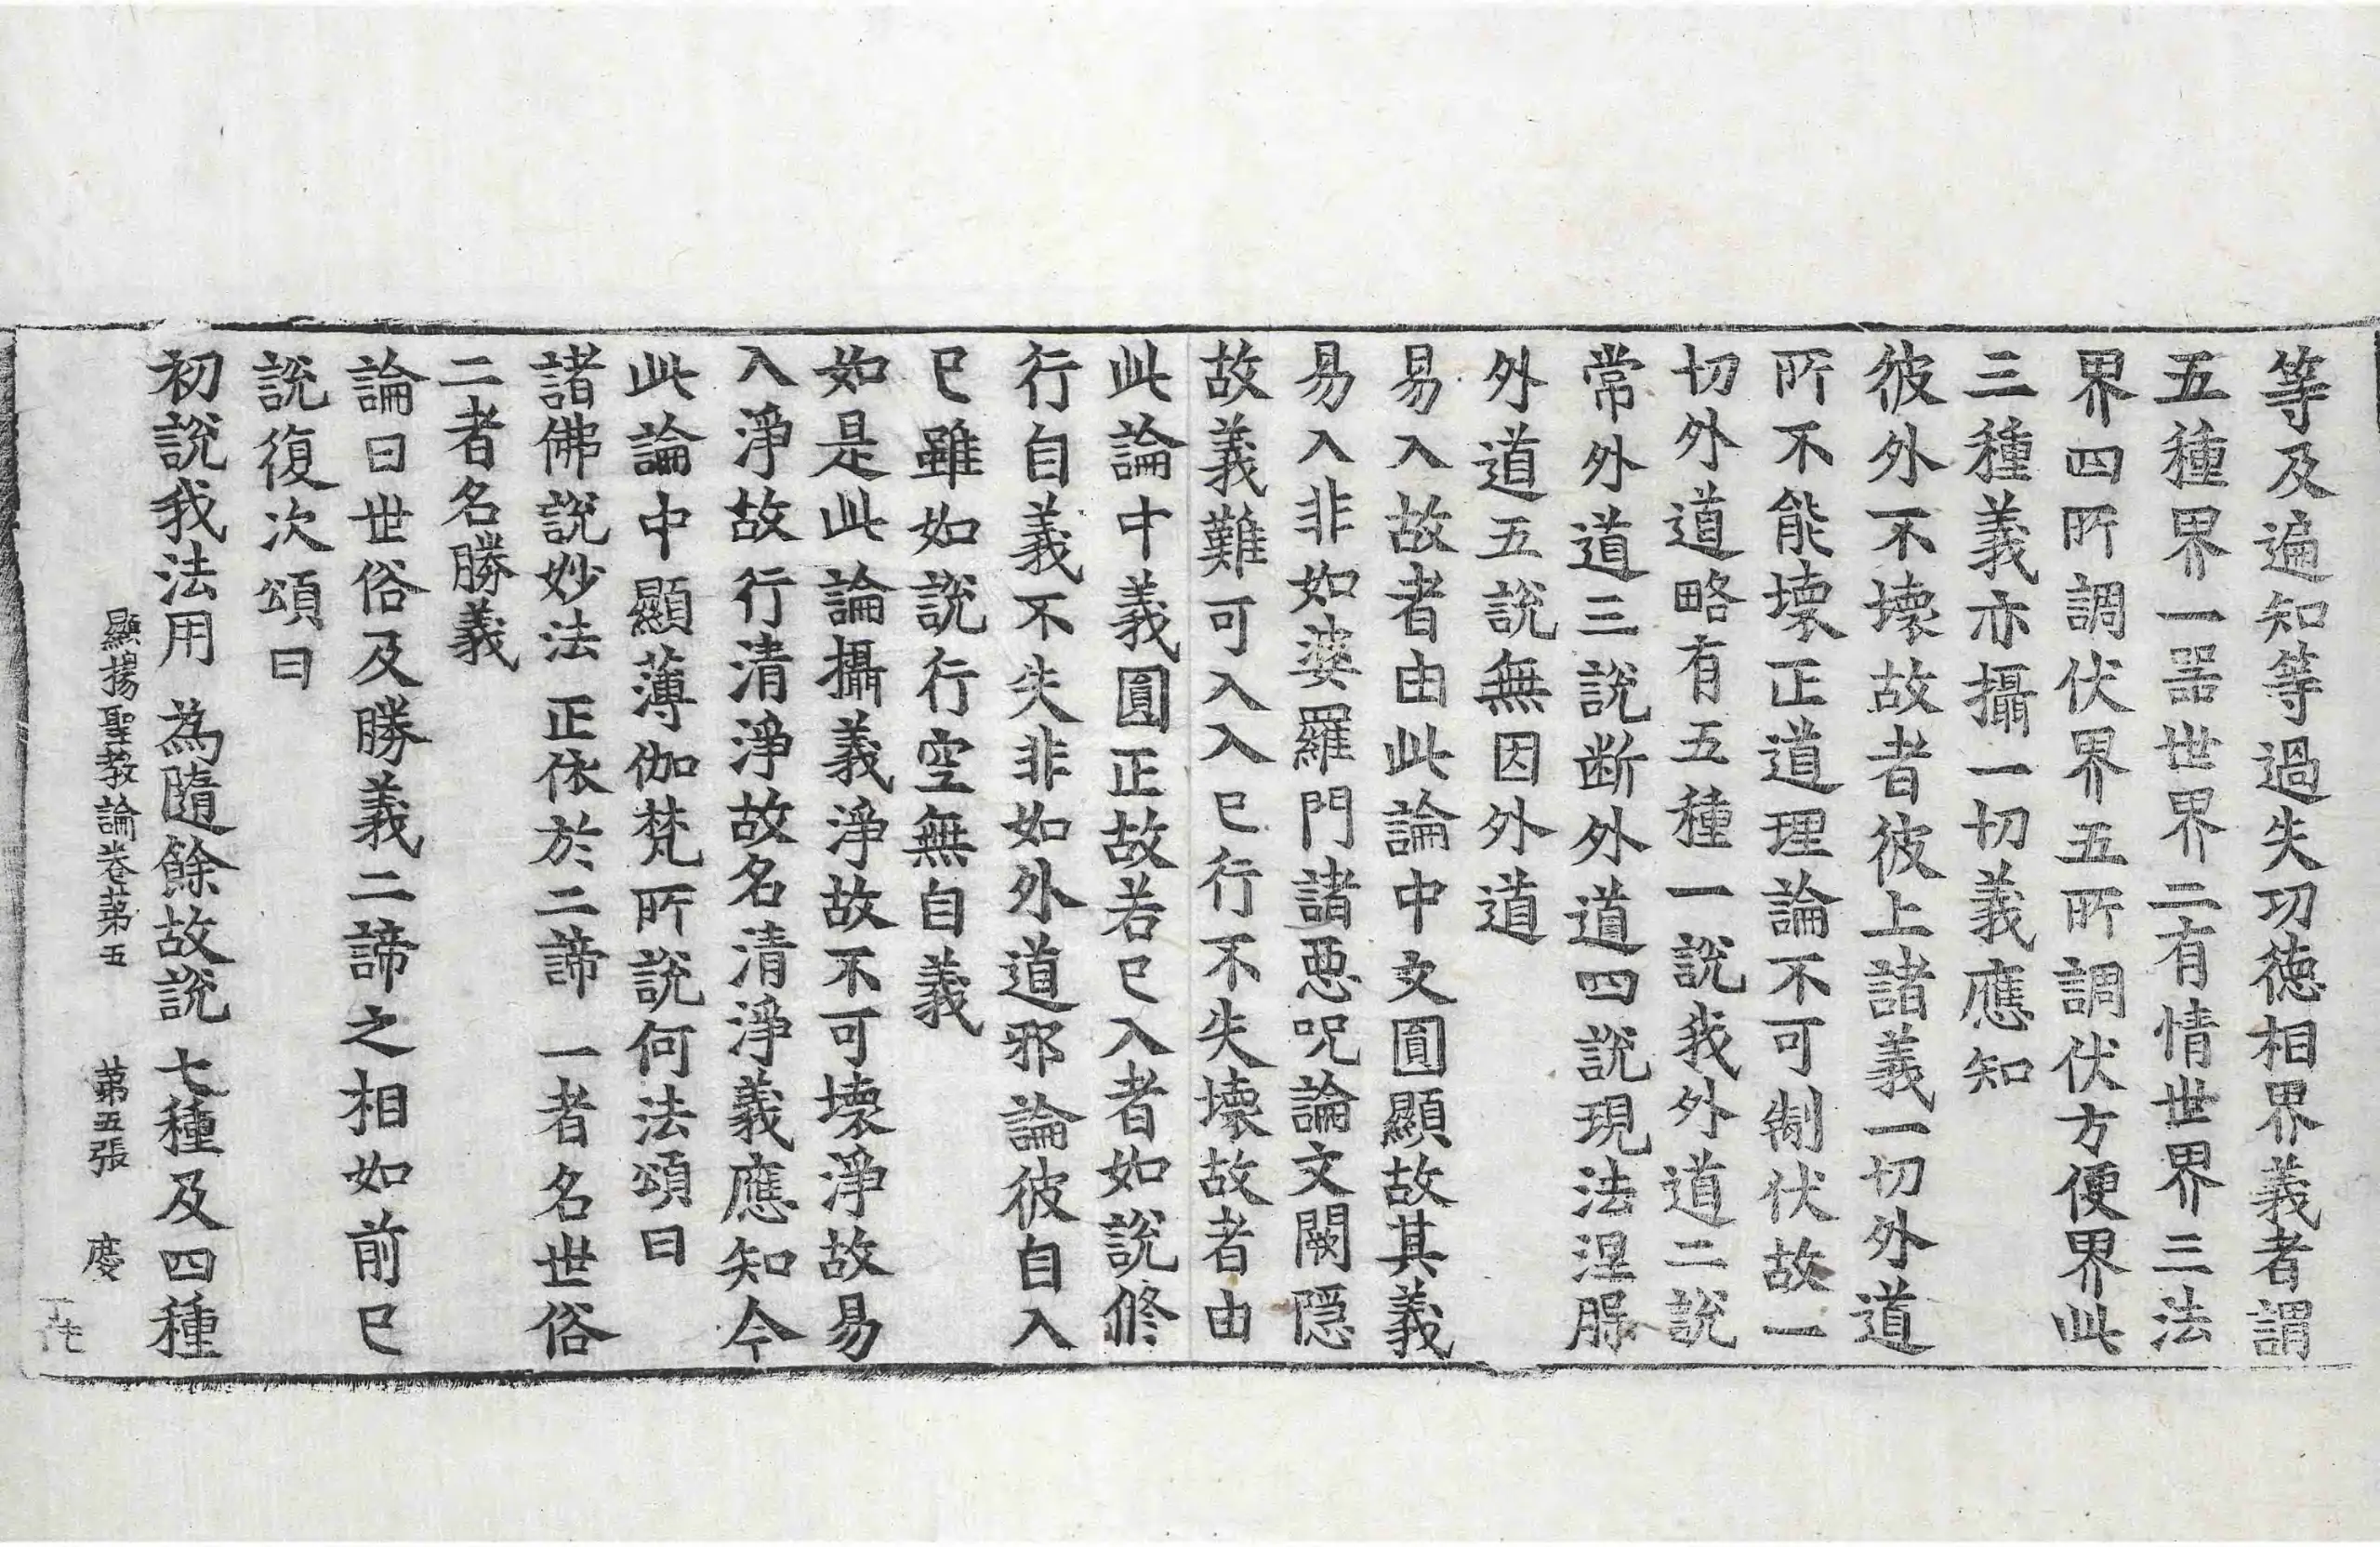 等及遍知等過失功徳相界義者謂
五種界一噐世界二有情世界三法
界四所調伏界五所調伏方便界此
三種義亦攝一切義應知
彼外不壊故者彼上諸義一切外道
所不能壊正道理論不可制伏故一
切外道略有五種一說我外道二說
常外道三說断外道四說現法涅槃
外道五說無因外道
易入故者由此論中文圓顯故其義
易入非如婆羅門諸惡呪論文闕隠
故義難可入入已行不失壊故者由
此論中義圓正故若已入者如說修
行自義不失非如外道邪論彼自入
已雖如說行空無自義
如是此論攝義淨故不可壊淨故易
入淨故行清淨故名清淨義應知今
此論中顯薄伽梵所說何法頌曰
諸佛說妙法 正依於二諦 一者名世俗
二者名勝義
論曰世俗及勝義二諦之相如前已
說復次頌曰
初說我法用 為隨餘故說 七種及四種
顯揚聖教論卷苐五 苐五張 慶